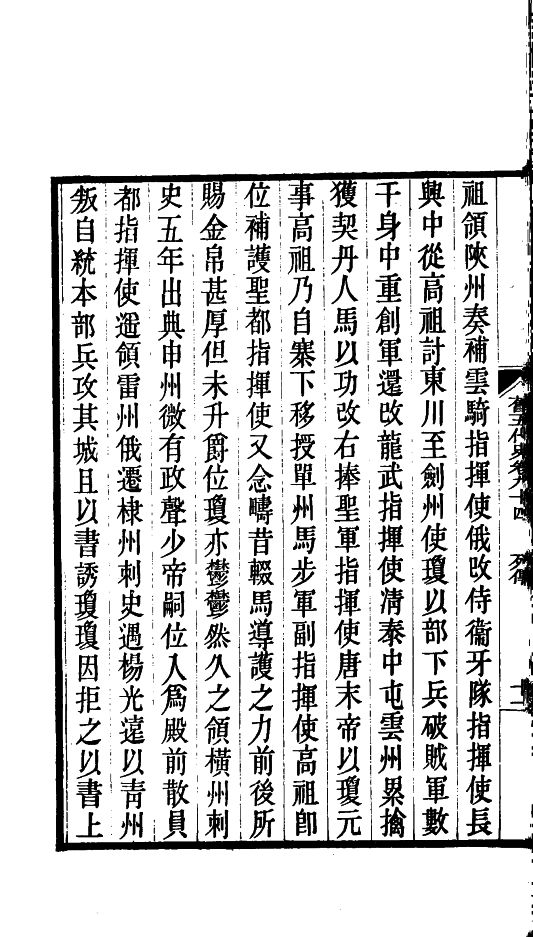 舊五代史卷九十四　列傳　十一
祖領陝州奏補雲騎指揮使俄改侍衞牙隊指揮使長
興中從高祖討東川至劍州使瓊以部下兵破賊軍數
千身中重創軍還改龍武指揮使淸泰中屯雲州累擒
獲契丹人馬以功改右捧聖軍指揮使唐末帝以瓊元
事高祖乃自寨下移授單州馬步軍副指揮使高祖卽
位補護聖都指揮使又念疇昔輟馬導護之力前後所
賜金帛甚厚但未升爵位瓊亦鬱鬱然久之領橫州刺
史五年出典申州微有政聲少帝嗣位入爲殿前散員
都指揮使遥領雷州俄遷棣州刺史遇楊光遠以靑州
叛自統本部兵攻其城且以書誘瓊瓊因拒之以書上